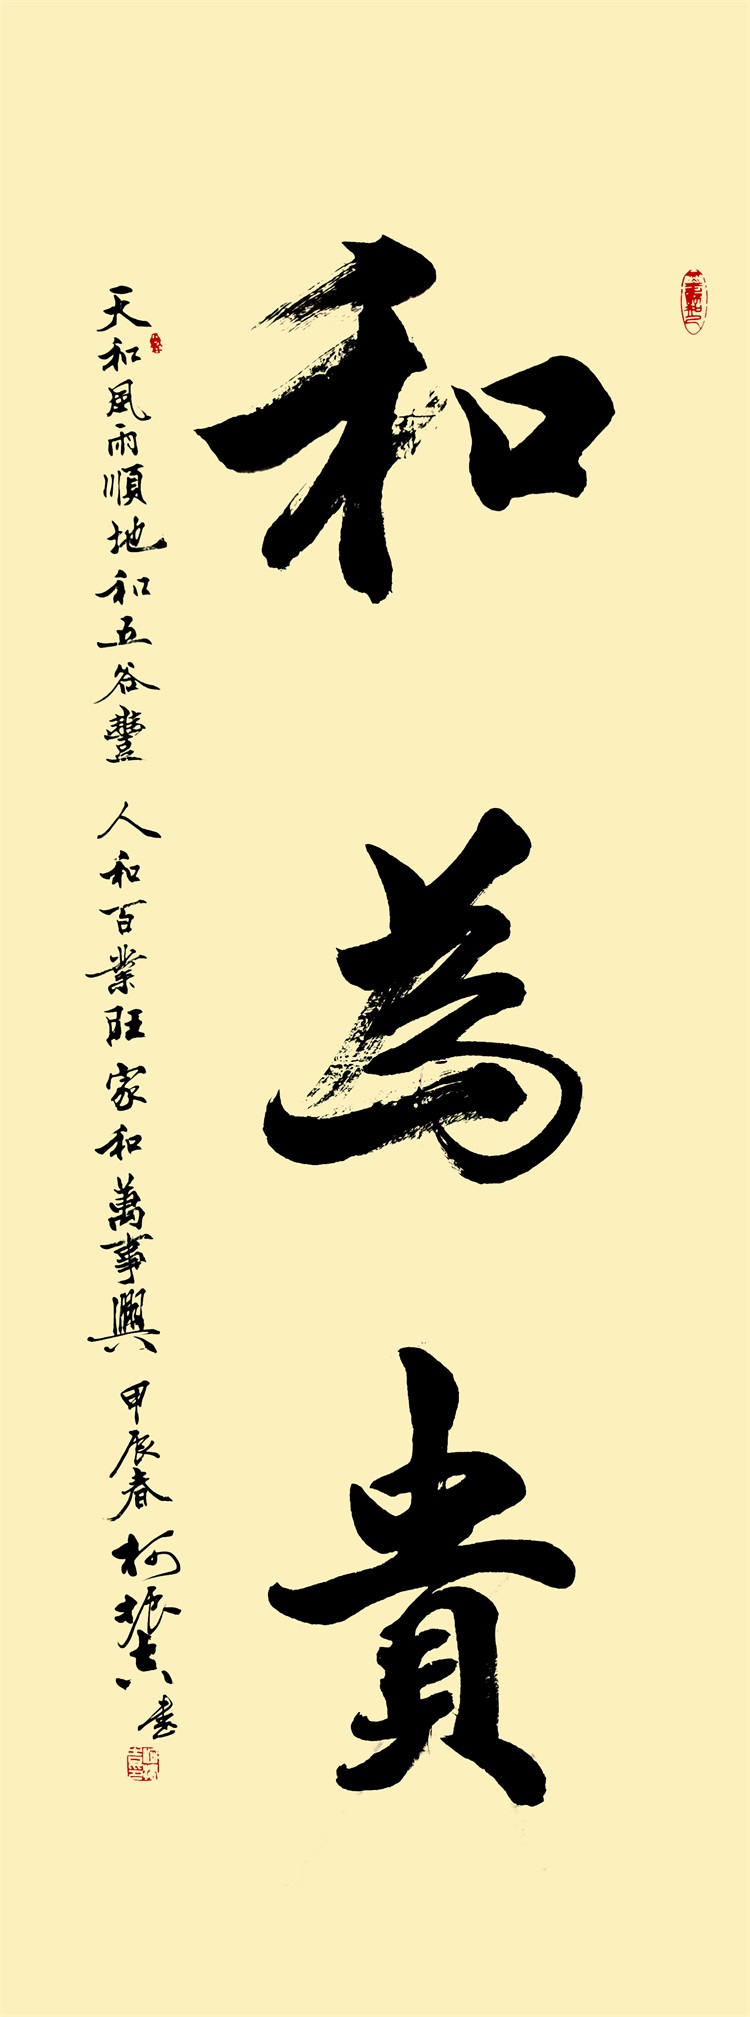 和為貴
天和風雨順地和五谷豐 人和百業旺家和萬事興 甲辰春 柯振 書